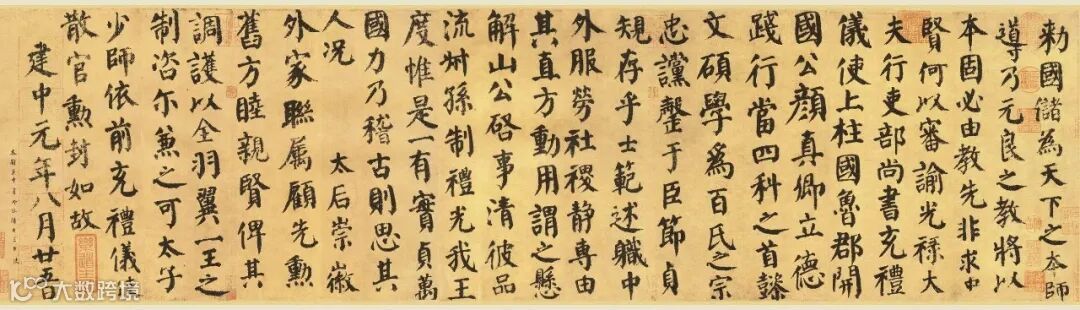 勅國儲為天下之本師
導乃元良之教將以
本固必由教先非求中
賢何以審諭光祿大
夫行吏部尚書充禮
儀使上柱國魯郡開
國公顏真卿立德
踐行當四科之首懿
文碩學為百氏之宗
忠讜罄于臣節貞
規存乎士範述職中
外服勞社稷靜專由
其直方動用謂之懸
解山公啓事清彼品
流叔孫制禮光我王
度惟是一有實貞萬
國力乃稽古則思其
人況 太后崇徽
外家聯屬顧先勳
舊方睦親賢俾其
調護以全羽翼一王之
制咨尔兼之可太子
少師依前充禮儀使
散官勳封如故
建中元年八月廿五日
大数跨境